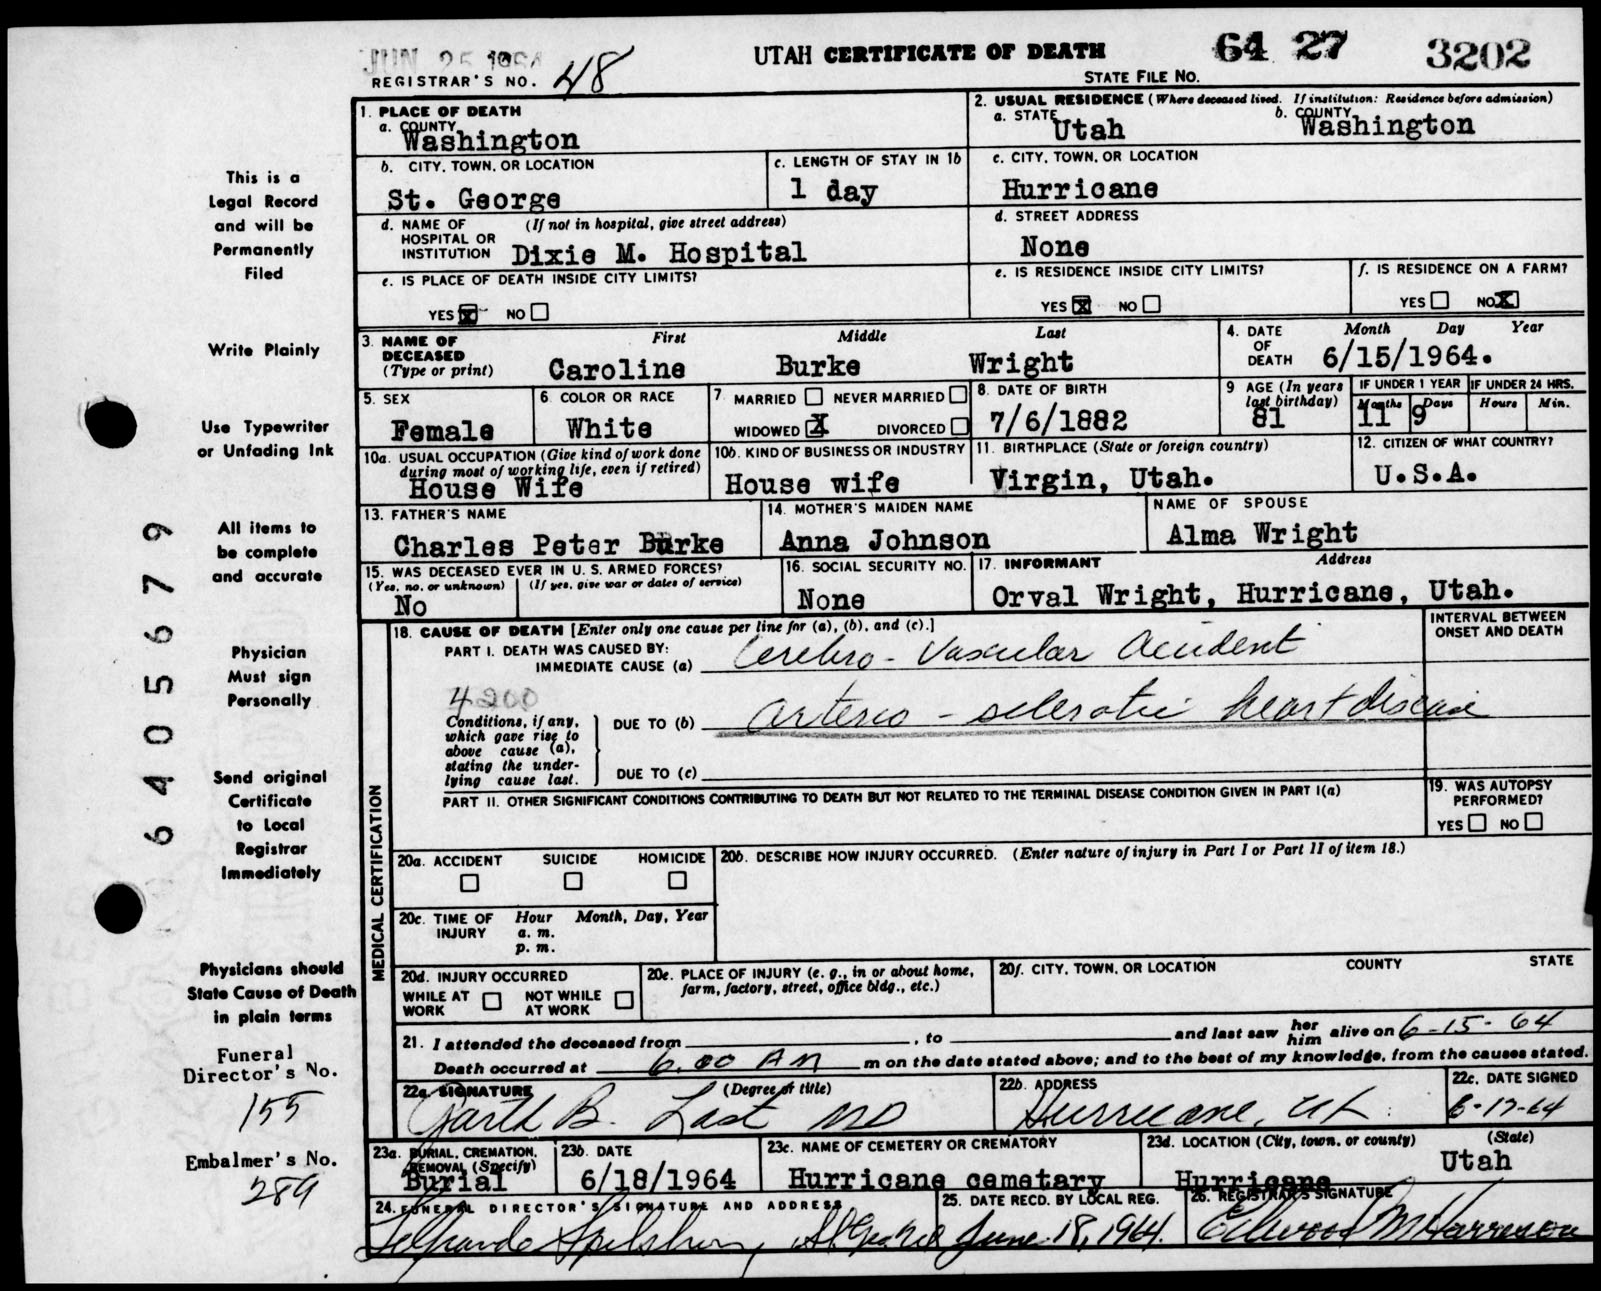 JUN 25 1964
UTAH CERTIFICATE OF DEATH 64 27 3202
REGISTRAR'S NO. 48
STATE FILE NO.
1. PLACE OF DEATH
a. COUNTY
Washington
2. USUAL RESIDENCE (Where deceased lived. If institution: Residence before admission)
a. STATE Utah b. COUNTY Washington
b. CITY, TOWN, OR LOCATION
St. George
c. LENGTH OF STAY IN 1b
1 day
c. CITY, TOWN, OR LOCATION
Hurricane
d. NAME OF HOSPITAL OR INSTITUTION (If not in hospital, give street address)
Dixie M. Hospital
d. STREET ADDRESS
None
e. IS PLACE OF DEATH INSIDE CITY LIMITS?
YES X NO
e. IS RESIDENCE INSIDE CITY LIMITS?
YES X NO
f. IS RESIDENCE ON A FARM?
YES NO X
3. NAME OF DECEASED (Type or print)
First Middle Last
Caroline Burke Wright
4. DATE OF DEATH Month Day Year
6/15/1964.
5. SEX
Female
6 COLOR OR RACE
White
7. MARRIED NEVER MARRIED
WIDOWED X DIVORCED
8. DATE OF BIRTH
7/6/1882
9 AGE (In years last birthday)
81
IF UNDER 1 YEAR IF UNDER 24 HRS.
Months Days Hours Min.
11 9
10a. USUAL OCCUPATION (Give kind of work done during most of working life, even if retired)
House Wife
10b. KIND OF BUSINESS OR INDUSTRY
House wife
11. BIRTHPLACE (State or foreign country)
Virgin, Utah.
12. CITIZEN OF WHAT COUNTRY?
U.S.A.
13. FATHER'S NAME
Charles Peter Burke
14. MOTHER'S MAIDEN NAME
Anna Johnson
NAME OF SPOUSE
Alma Wright
15. WAS DECEASED EVER IN U. S. ARMED FORCES?
(Yes, no, or unknown) (If yes, give war or dates of service)
No
16. SOCIAL SECURITY NO.
None
17. INFORMANT Address
Orval Wright, Hurricane, Utah.
MEDICAL CERTIFICATION
18. CAUSE OF DEATH [Enter only one cause per line for (a), (b), and (c).]
INTERVAL BETWEEN ONSET AND DEATH
PART I. DEATH WAS CAUSED BY:
IMMEDIATE CAUSE (a) Cerebro-Vascular Accident
4200
Conditions, if any, which gave rise to above cause (a), stating the underlying cause last.
DUE TO (b) Arterio-sclerotic heart disease
DUE TO (c)
PART II. OTHER SIGNIFICANT CONDITIONS CONTRIBUTING TO DEATH BUT NOT RELATED TO THE TERMINAL DISEASE CONDITION GIVEN IN PART I(a)
19. WAS AUTOPSY PERFORMED?
YES NO
20a. ACCIDENT SUICIDE HOMICIDE
20b. DESCRIBE HOW INJURY OCCURRED. (Enter nature of injury in Part I or Part II of item 18.)
20c. TIME OF INJURY Hour Month, Day, Year
a. m.
p. m.
20d. INJURY OCCURRED
WHILE AT WORK NOT WHILE AT WORK
20e. PLACE OF INJURY (e. g., in or about home, farm, factory, street, office bldg., etc.)
20f. CITY, TOWN, OR LOCATION COUNTY STATE
21. I attended the deceased from , to and last saw her him alive on 6-15-64
Death occurred at 6.00 AM m on the date stated above; and to the best of my knowledge, from the causes stated.
22a. SIGNATURE (Degree or title)
Garth B. Last MD
22b. ADDRESS
Hurricane, Ut.
22c. DATE SIGNED
6-17-64
23a. BURIAL, CREMATION, REMOVAL (Specify)
Burial
23b. DATE
6/18/1964
23c. NAME OF CEMETERY OR CREMATORY
Hurricane cemetary
23d. LOCATION (City, town, or county) (State)
Hurricane Utah
24. FUNERAL DIRECTOR'S SIGNATURE AND ADDRESS
Spilsbury, St George
25. DATE RECD. BY LOCAL REG.
June 18, 1964
26. REGISTRAR'S SIGNATURE
Ellwood M Harrison
This is a
Legal Record
and will be
Permanently
Filed
Write Plainly
Use Typewriter
or Unfading Ink
All items to
be complete
and accurate
Physician
Must sign
Personally
Send original
Certificate
to Local
Registrar
Immediately
Physicians should
State Cause of Death
in plain terms
Funeral
Director's No.
155
Embalmer's No.
289
6405679